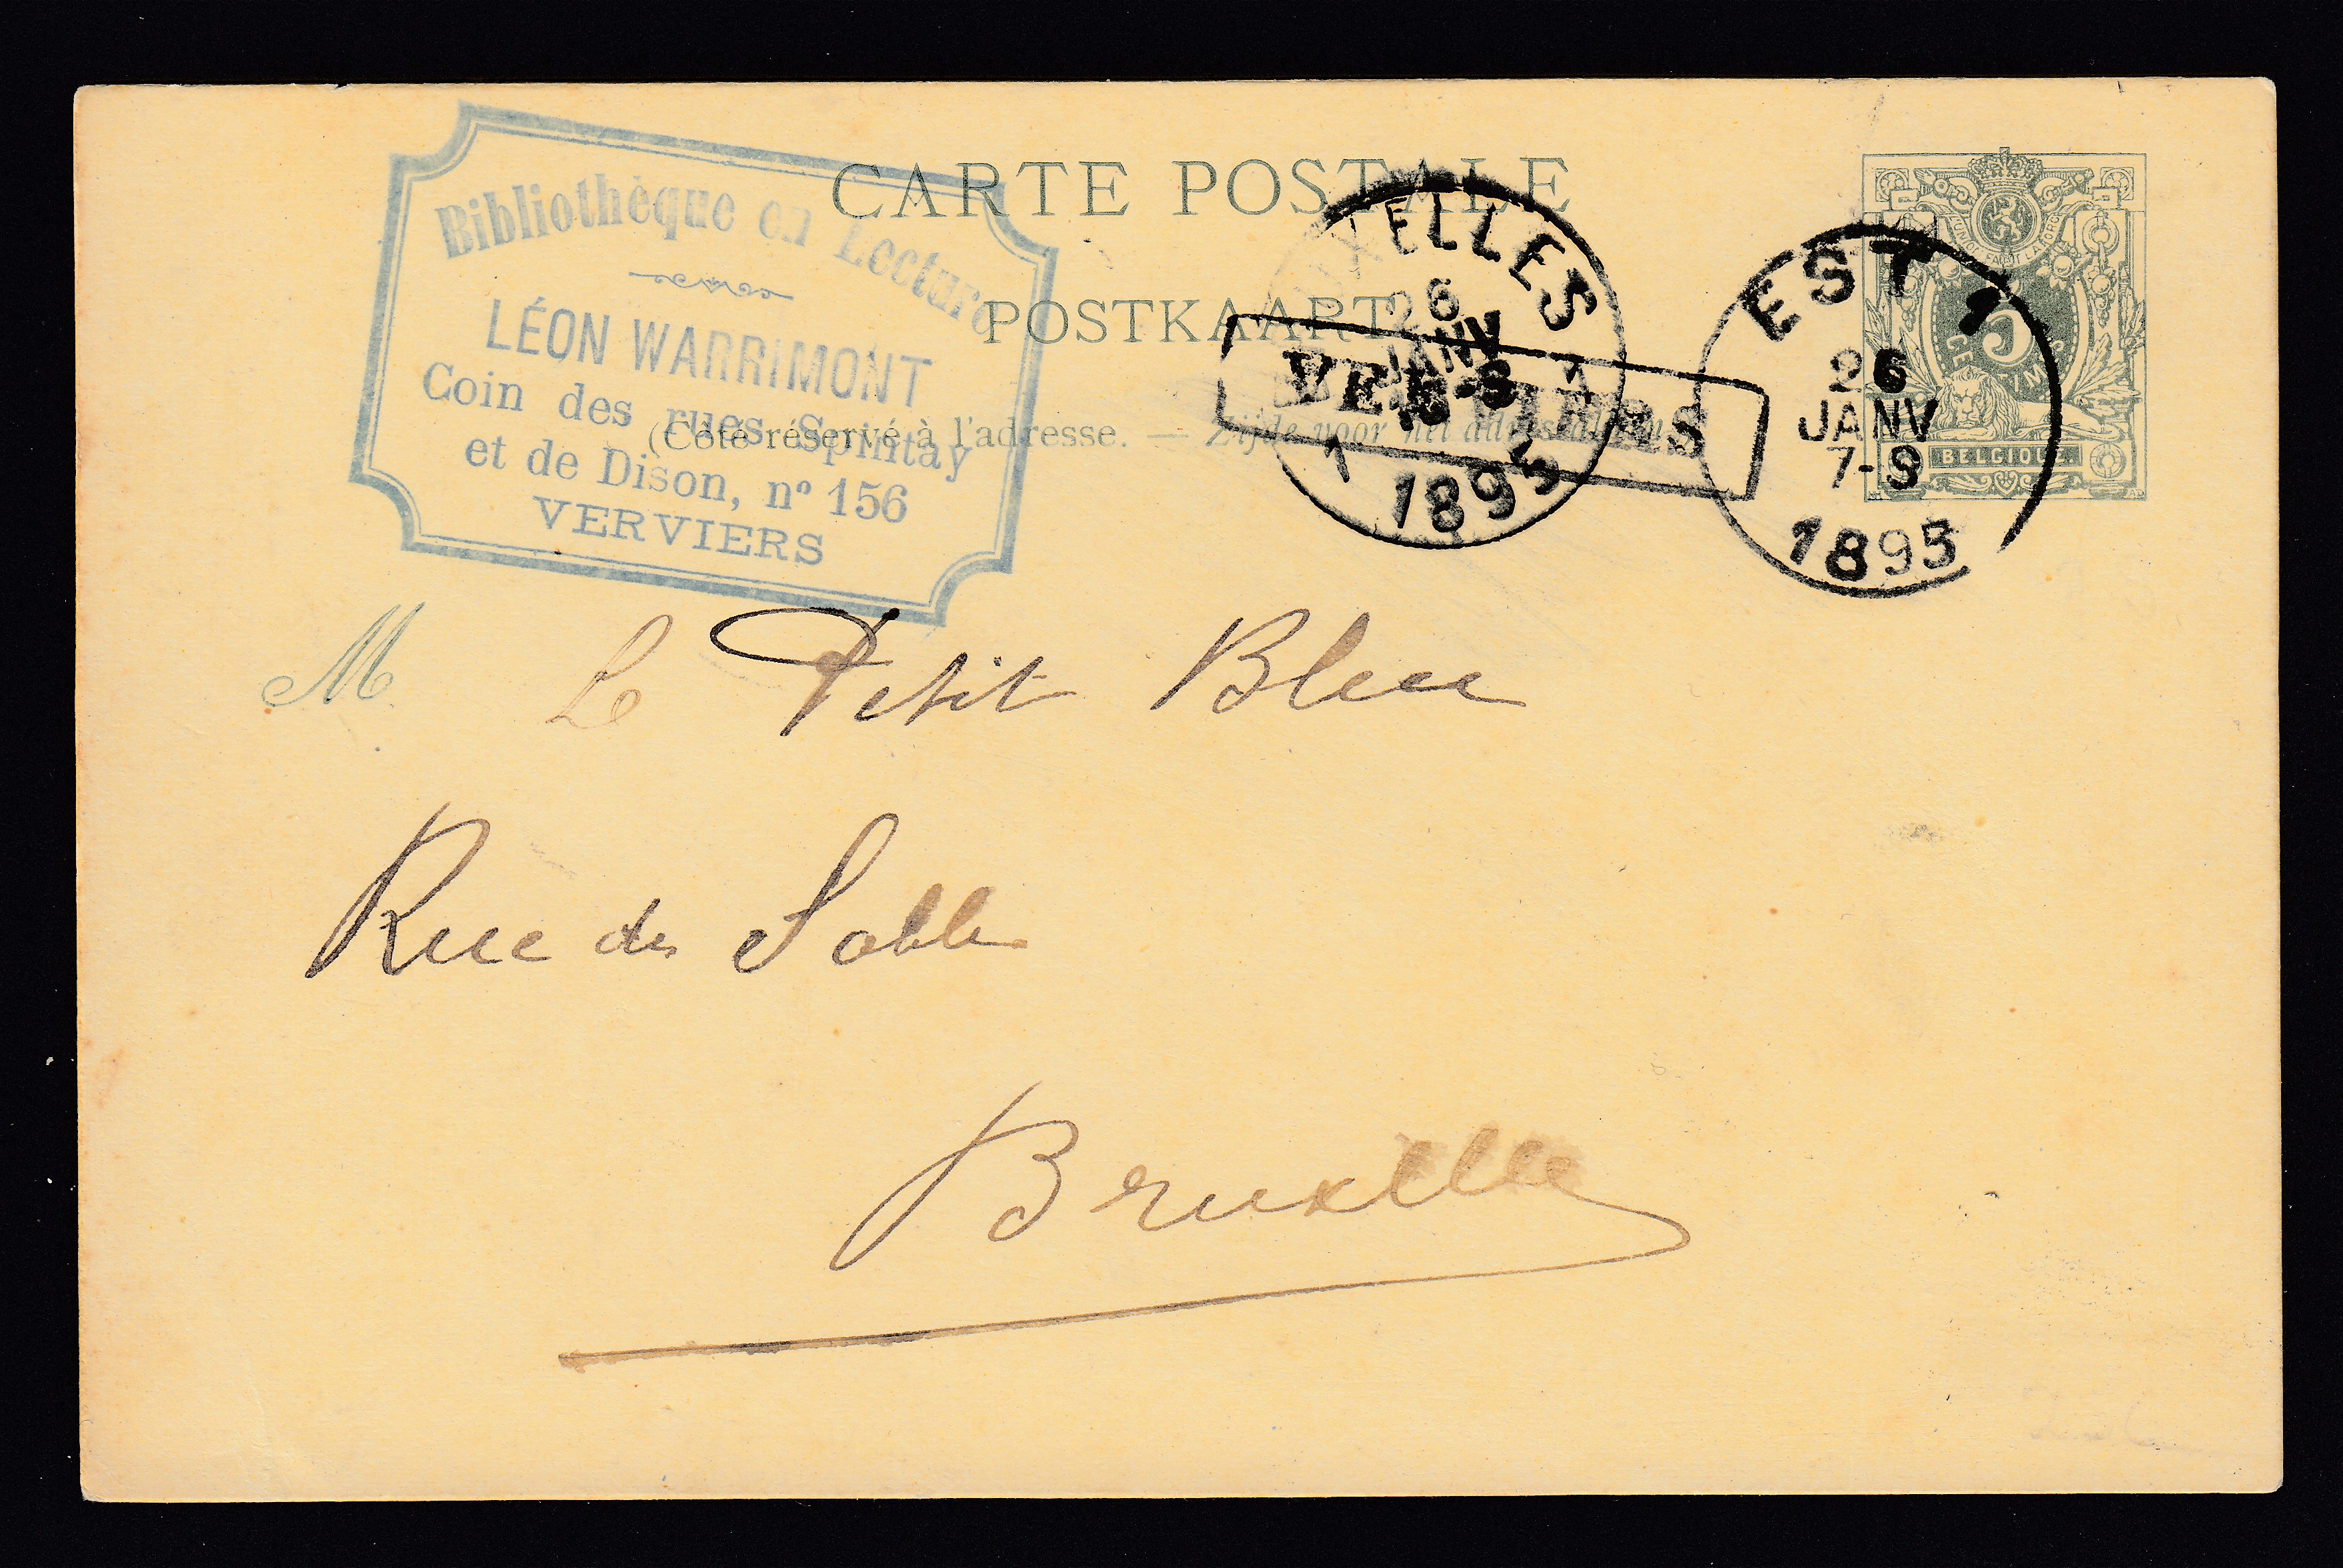 CARTE POSTALE
POSTKAART
(Côté réservé à l'adresse. — Zijde voor het adres
Bibliothèque en Lecture
LÉON WARRIMONT
Coin des rues Spintay
et de Dison, nº 156
VERVIERS
BRUXELLES 1
26
JANV
1895
VERVIERS
EST 1
26
JANV
7-8
1895
L'UNION FAIT LA FORCE
5
CENTIMES
BELGIQUE.
M Le Petit Bleu
Rue des Sables
Bruxelles